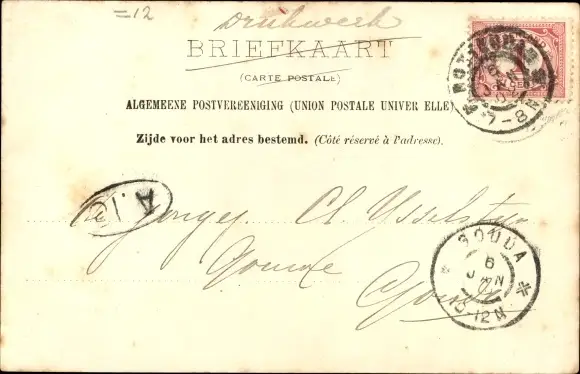 =12
Drukwerk
BRIEFKAART
(CARTE POSTALE)
ALGEMEENE POSTVEREENIGING (UNION POSTALE UNIVER ELLE)
Zijde voor het adres bestemd. (Côté réservé à l'adresse).
ROTTERDAM
7-8N
A.10
Cl. IJsselsteyn
Gouwe
Gouda
GOUDA
6
JAN
12N